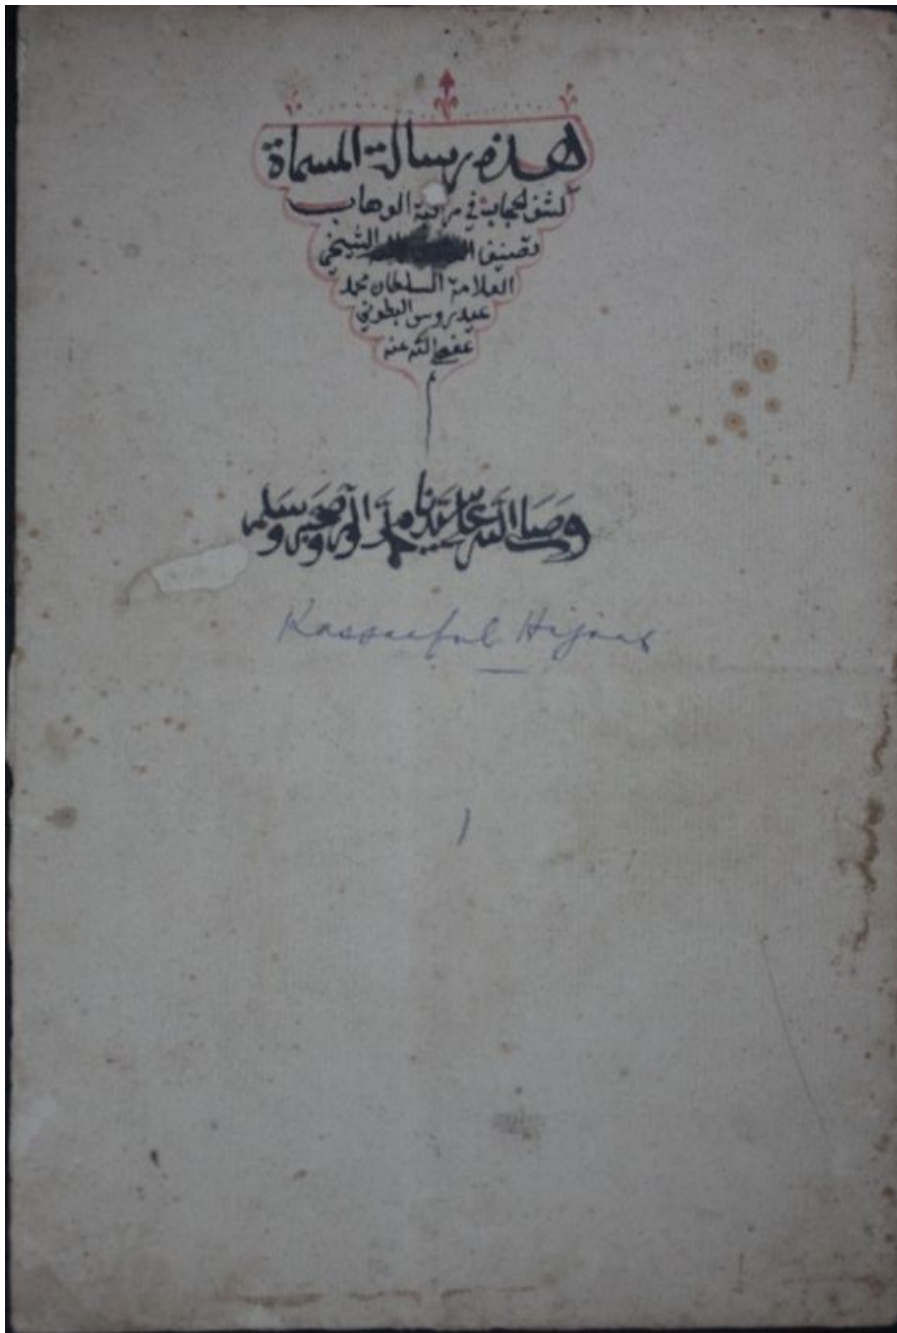 هذه رسالة المسماة
كشف الحجاب في الوهاب
تصنيف الشيخ
العلامة السلطان محمد
عيدروس البطوني
عفى الله عنه
وصلى الله على سيدنا محمد وآله وصحبه وسلم
Kassaaful Hijaab